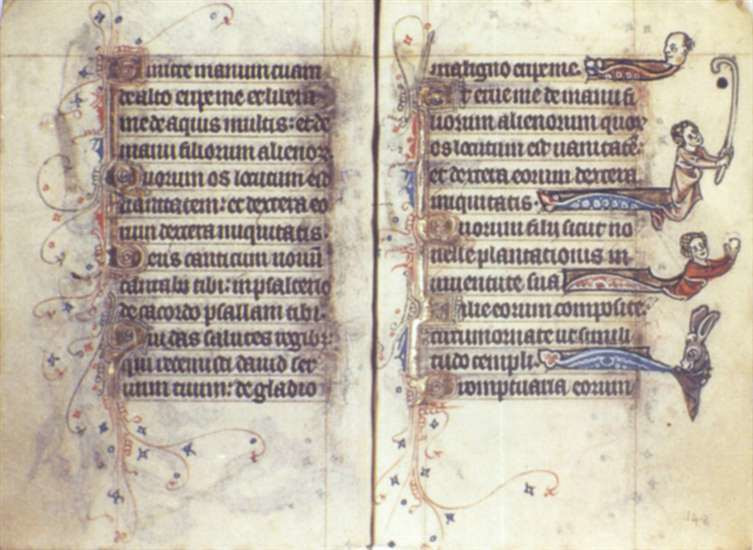 Emitte manum tuam
de alto eripe me et libera
me de aquis multis: et de
manu filiorum alienor.
Quorum os locutum est
vanitatem: et dextera eo
rum dextera iniquitatis.
Deus canticum novū
cantabo tibi: in psalterio
decacordo psallam tibi.
Qui das salutē regibȝ
qui redemisti david ser
vum tuum: de gladio
maligno eripe me.
Et erue me de manu fi
liorum alienorum quoꝝ
os locutum est vanitatē:
et dextera eorum dextera
iniquitatis.
Quorum filii sicut no
velle plantationis in
iuventute sua.
Filie eorum composite:
circumornate ut simili
tudo templi.
Promptuaria eorum